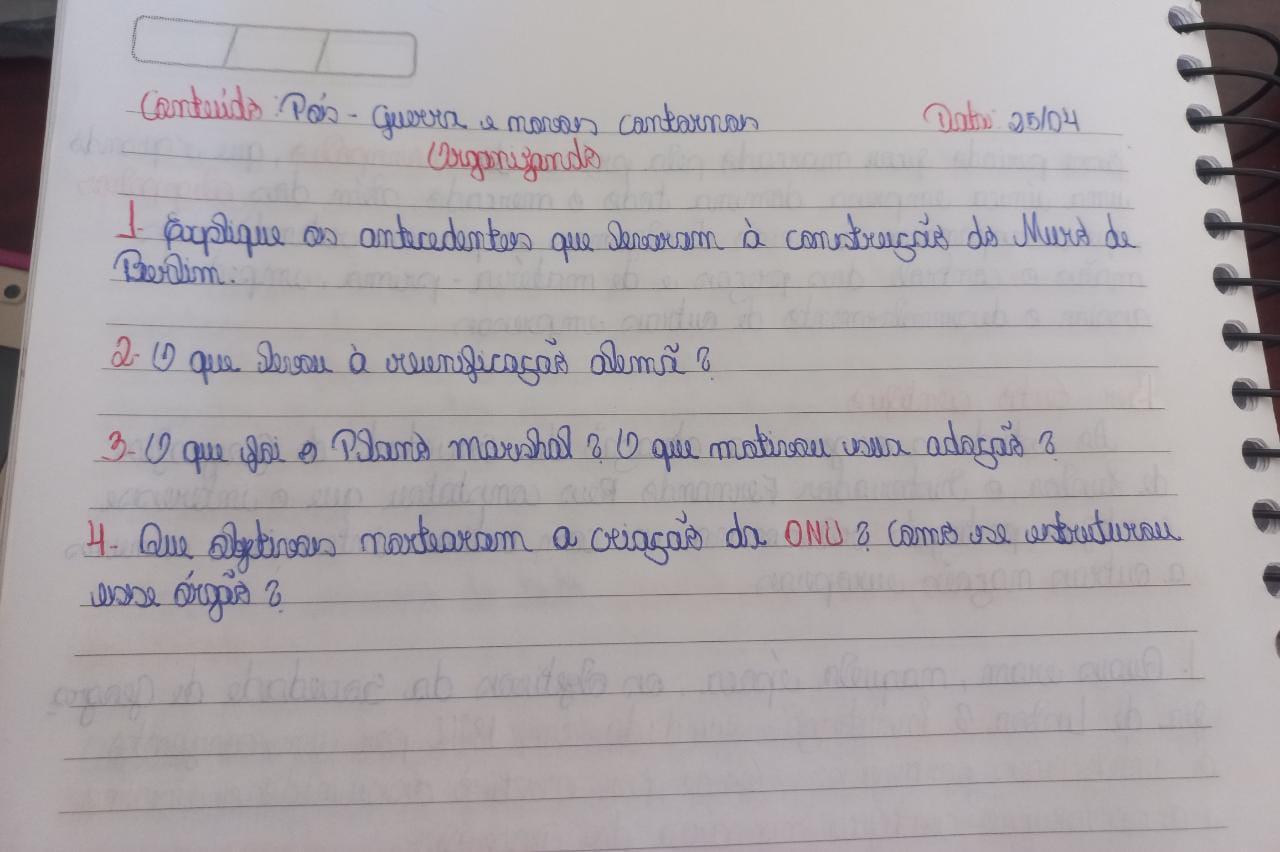 Conteúdo: Pós - Guerra e novos contornos Data: 25/04
Organizando
1- Explique os antecedentes que levaram à construção do Muro de
Berlim.
2- O que levou à reunificação alemã?
3- O que foi o Plano marshal? O que motivou sua adoção?
4- Que objetivos nortearam a criação da ONU? Como se estruturou
esse órgão?